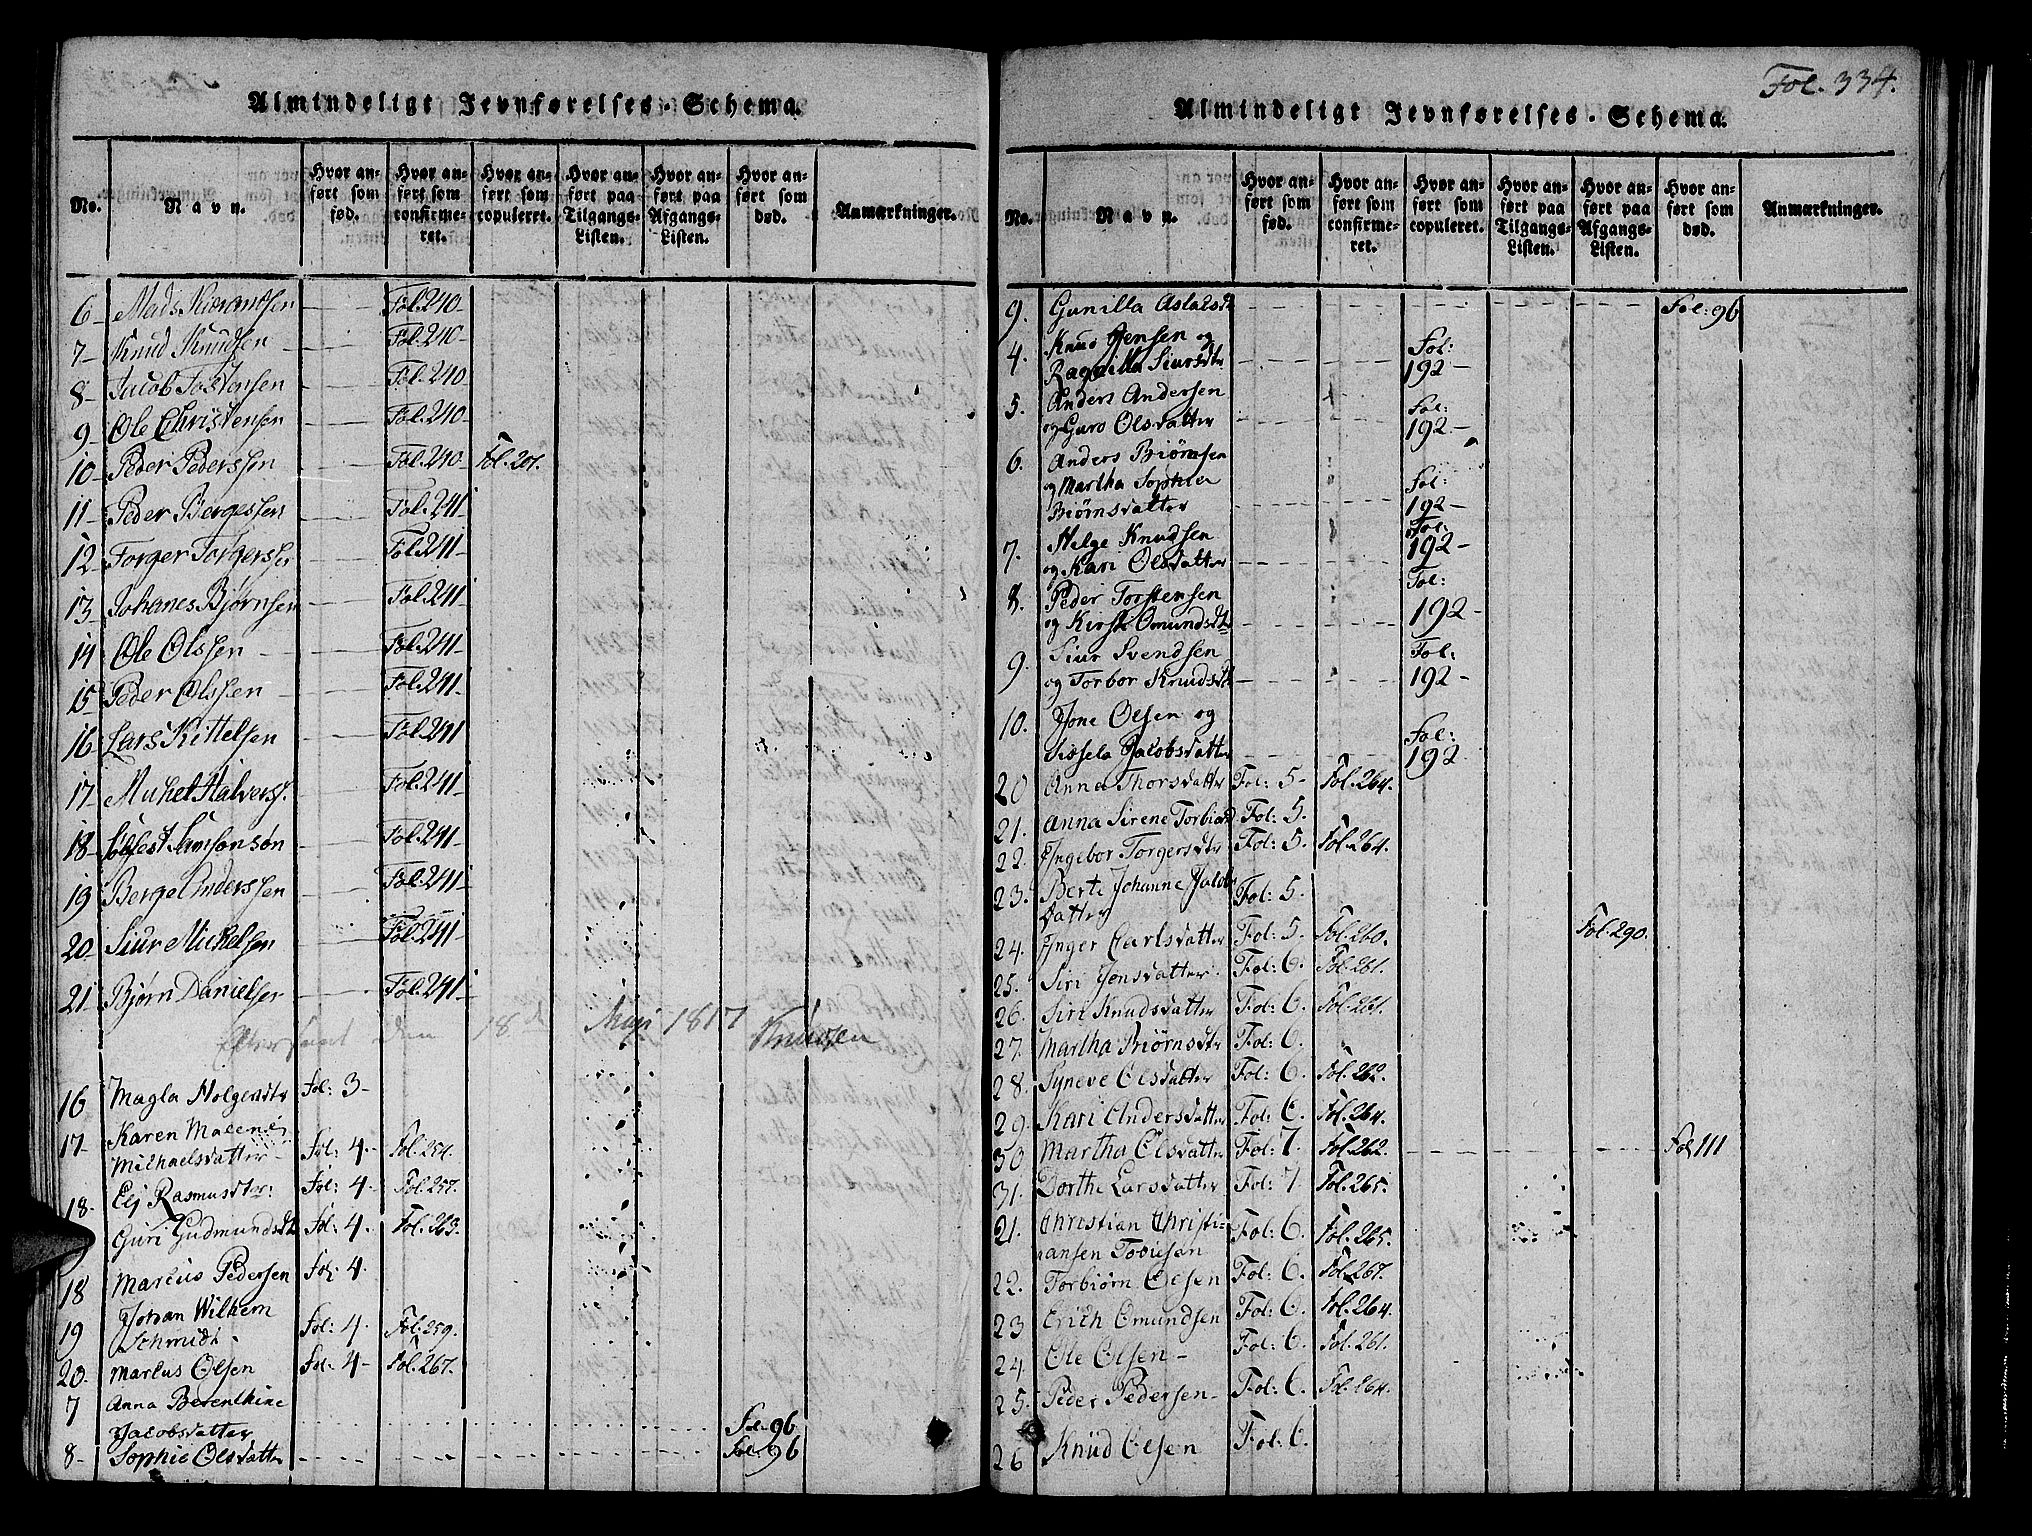 Almindeligt Jevnførelses-Schema.
No. Navn. Hvor anført som fød. Hvor anført som confirmeret. Hvor anført som copuleret. Hvor anført paa Tilgangs-Listen. Hvor anført paa Afgangs-Listen. Hvor anført som død. Anmærkninger.
6 Mads Fol. 240
7 Knud Knudsen Fol. 240
8 Jacob Fol. 240
9 Ole Christensen Fol. 240
10 Peder Pederssen Fol. 240 Fol. 201.
11 Peder Børgessen Fol. 241
12 Torger Torgerssen Fol. 241
13 Johanes Bjørnsen Fol. 241
14 Ole Olssen Fol. 241
15 Peder Olssen Fol. 241
16 Lars Kittelsen Fol. 241
17 Mikel Halvorss. Fol. 241
18 Samsonsøn Fol. 241
19 Berge Anderssen Fol. 241
20 Siur Mickelsen Fol. 241
21 Bjørn Danielsen Fol. 241
Efterseet den 18de Maji 1817 Knudsen
16 Magla Holgersdtr Fol: 3
17 Karen Malene
Michaelsdatter Fol: 4 Fol. 257.
18. Elj Rasmusdtr: Fol: 4 Fol. 257.
Guri Gudmundsdtr Fol: 4. Fol. 263.
18 Marcus Pedersen Fol: 4.
19 Johan Wilhem
Schmidt Fol: 4. Fol. 259.
20. Marcus Olsen Fol: 4 Fol. 267.
7 Anna Berenthine
Jacobsdatter Fol. 96
8 Sophie Olsdatter Fol. 96
Fol. 334.
Almindeligt Jevnførelses-Schema.
No. Navn. Hvor anført som fød. Hvor anført som confirmeret. Hvor anført som copuleret. Hvor anført paa Tilgangs-Listen. Hvor anført paa Afgangs-Listen. Hvor anført som død. Anmærkninger.
9. Gunilla Aslaksdtr Fol: 96
4. Knud Jensen og Fol:
Ragnilla Siursdtr 192
5. Anders Andersen Fol:
og Guro Olsdatter 192
6. Anders Biørnsen
og Martha Sophia Fol:
Biørnsdatter 192
7. Helge Knudsen Fol:
og Kari Olsdatter 192
8. Peder Torstensen Fol:
og Kirsti Omundsdtr 192
9. Siur Svendsen Fol:
og Torbor Knudsdtr 192
10. Jone Olsen og Fol:
Sissela Jacobsdatter 192
20 Anna Thorsdatter Fol: 5 Fol. 264.
21. Anna Sirene Torbiørnsd Fol: 5.
22. Ingebor Torgersdtr Fol: 5. Fol. 264.
23. Berte Johanne Jacobs
datter Fol: 5.
24. Inger Carlsdatter Fol: 5. Fol. 260. Fol. 290.
25. Siri Jonsdatter Fol: 6. Fol. 261.
26. Siri Knudsdatter Fol: 6. Fol. 261.
27. Martha Biørnsdtr Fol: 6.
28. Syneve Olsdatter Fol: 6. Fol. 262.
29. Kari Andersdatter Fol: 6. Fol. 264.
30 Martha Olsdatter Fol: 7. Fol. 262. Fol 111
31. Dorthe Larsdatter Fol: 7 Fol. 265.
21. Christian Christi-
ansen Fol: 6. Fol. 265.
22. Torbiørn Olsen Fol: 6. Fol. 267.
23 Erich Omundsen Fol: 6. Fol. 264.
24. Ole Olsen Fol: 6. Fol. 261.
25. Peder Pedersen Fol: 6. Fol. 264.
26 Knud Olsen Fol: 6.